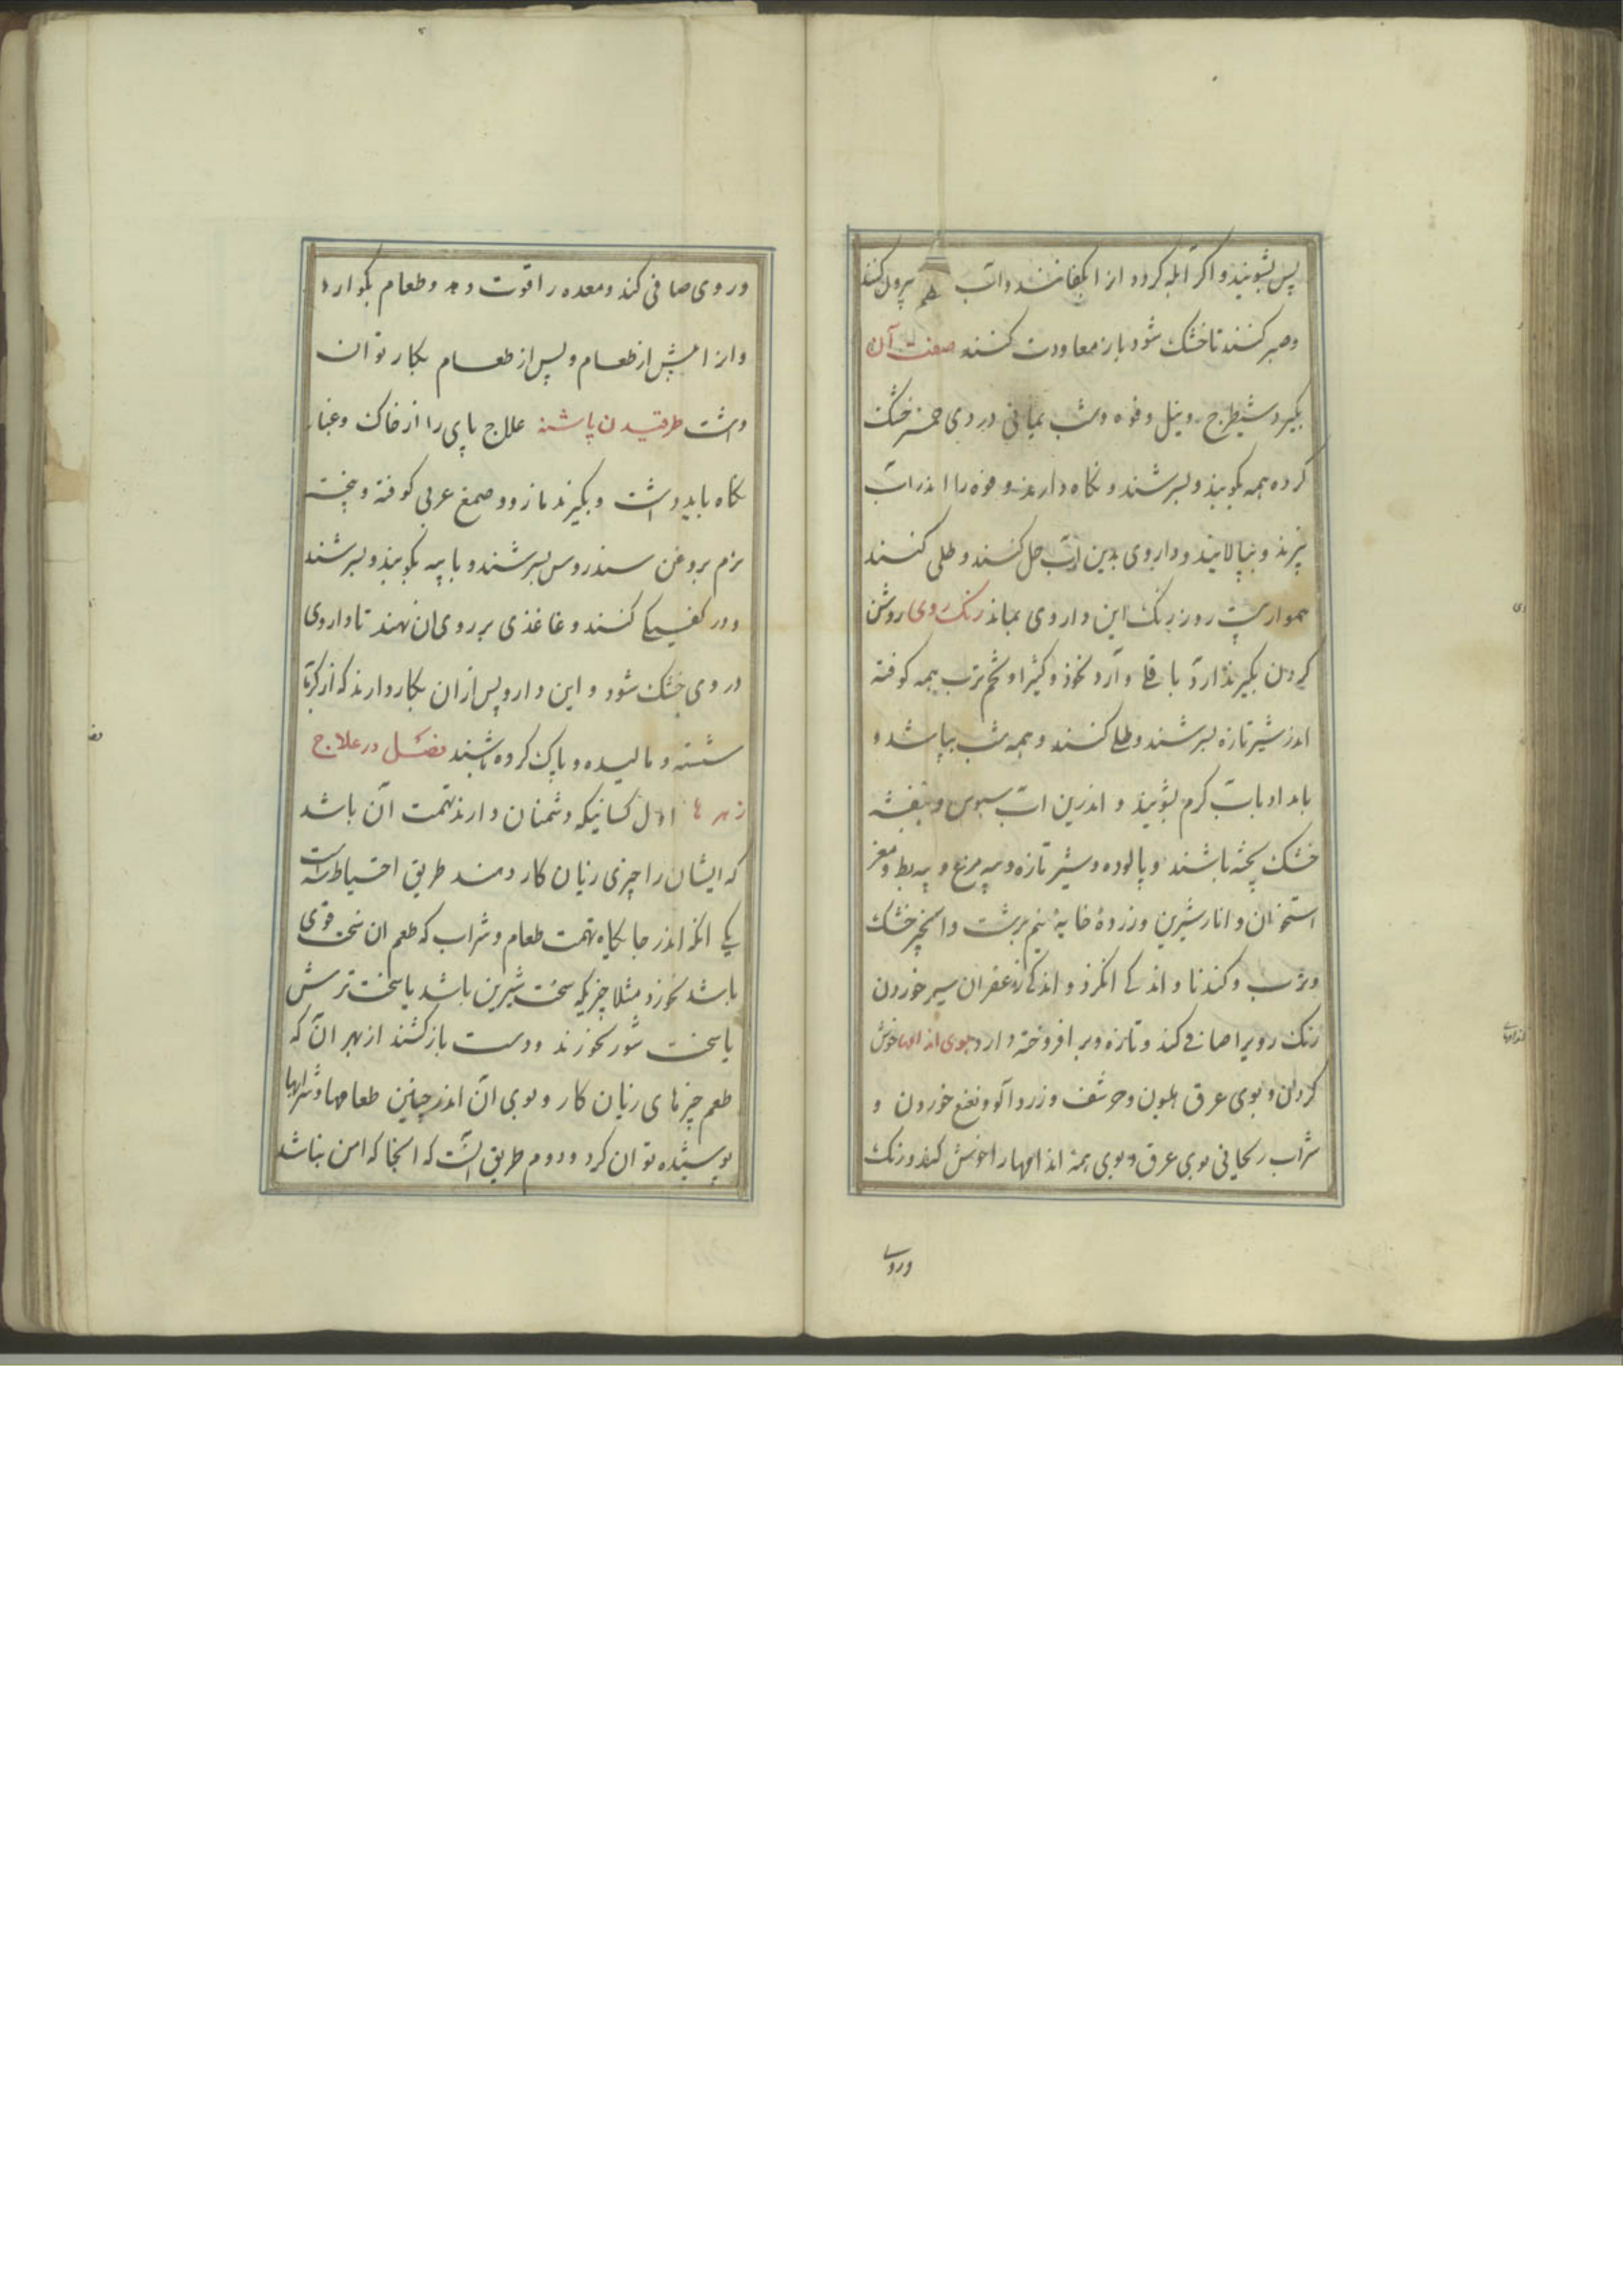 پس بشویند و اگر آبله کردد ازا بکفانند و آب بیرول کنند
وصبر کنند تا خشک شود باز معاودت کنند صفت آن
بگیرد شیطرج و نیل و فوه و شب یمانی دردی خمر خشک
کرده همه بکوبند و بسرشند و نکاه دارند و فوه را اندر آب
بپزند و بپالایند و داروی بدین آب حل کنند و طلی کنند
روز رنک این داروی بماند رنک روی روشن
کردن بکیرند آرد باقلی و آرد نخوذ و کثیرا و تخم ترب همه کوفته
اندر شیر تازه بسرشند و طلی کنند و همه شب بباشد و
بامداد بآب کرم بشویند و اندرین آب سبوس و بنفشه
خشک پخته باشند و پالوده و شیر تازه و پیه مرغ و پیه بط و مغز
استخوان و انار شیرین و زردۀ خایۀ نیم برشت و انجیر خشک
و ترب و کندنا و اندکی انکزد و اندکی زعفران سیر خوردن
رنک رویرا صافی کند و تازه و بر افروخته دارد بوی اندامها خوش
کردن و بوی عرق هلیون و حرشف و زردآلو و نعنع خوردن و
شراب ریحانی بوی عرق و بوی همۀ اندامها را خوش کند و رنک
وروی
وروی صافی کند و معده را قوت دهد و طعام بکوارد
وازا پیش از طعام و پس از طعام بکار توان
داشت طرقیدن پاشنه علاج پای را از خاک و غبار
نکاه باید داشت و بکیرند مازو و صمغ عربی کوفته و پخته
نرم بروغن سندروس بسرشند و با پیه بکوبند و بسرشند
و در کفسکی کنند و غاغذی بر روی ان نهند تا داروی
دروی خشک شود و این دارو پس ازان بکار دارند که از کرما
شسته و مالیده و پاک کرده باشند فصل در علاج
زهرها اول کسانیکه دشمنان دارند تهمت آن باشد
که ایشان را چیزی زیان کار دهند طریق احتیاط است
یکی انکه اندر جایکاه تهمت طعام و شراب که طعم ان سخت قوی
باشد نخورد مثلا چیزیکه سخت شیرین باشد یا سخت ترش
یا سخت شور نخورند و دست بازکشند از بهر آن که
طعم چیزهای زیان کار و بوی آن اندر چنین طعامها و شرابها
پوسیده توان کرد و دوم طریق آنست که انجا که امن نباشد